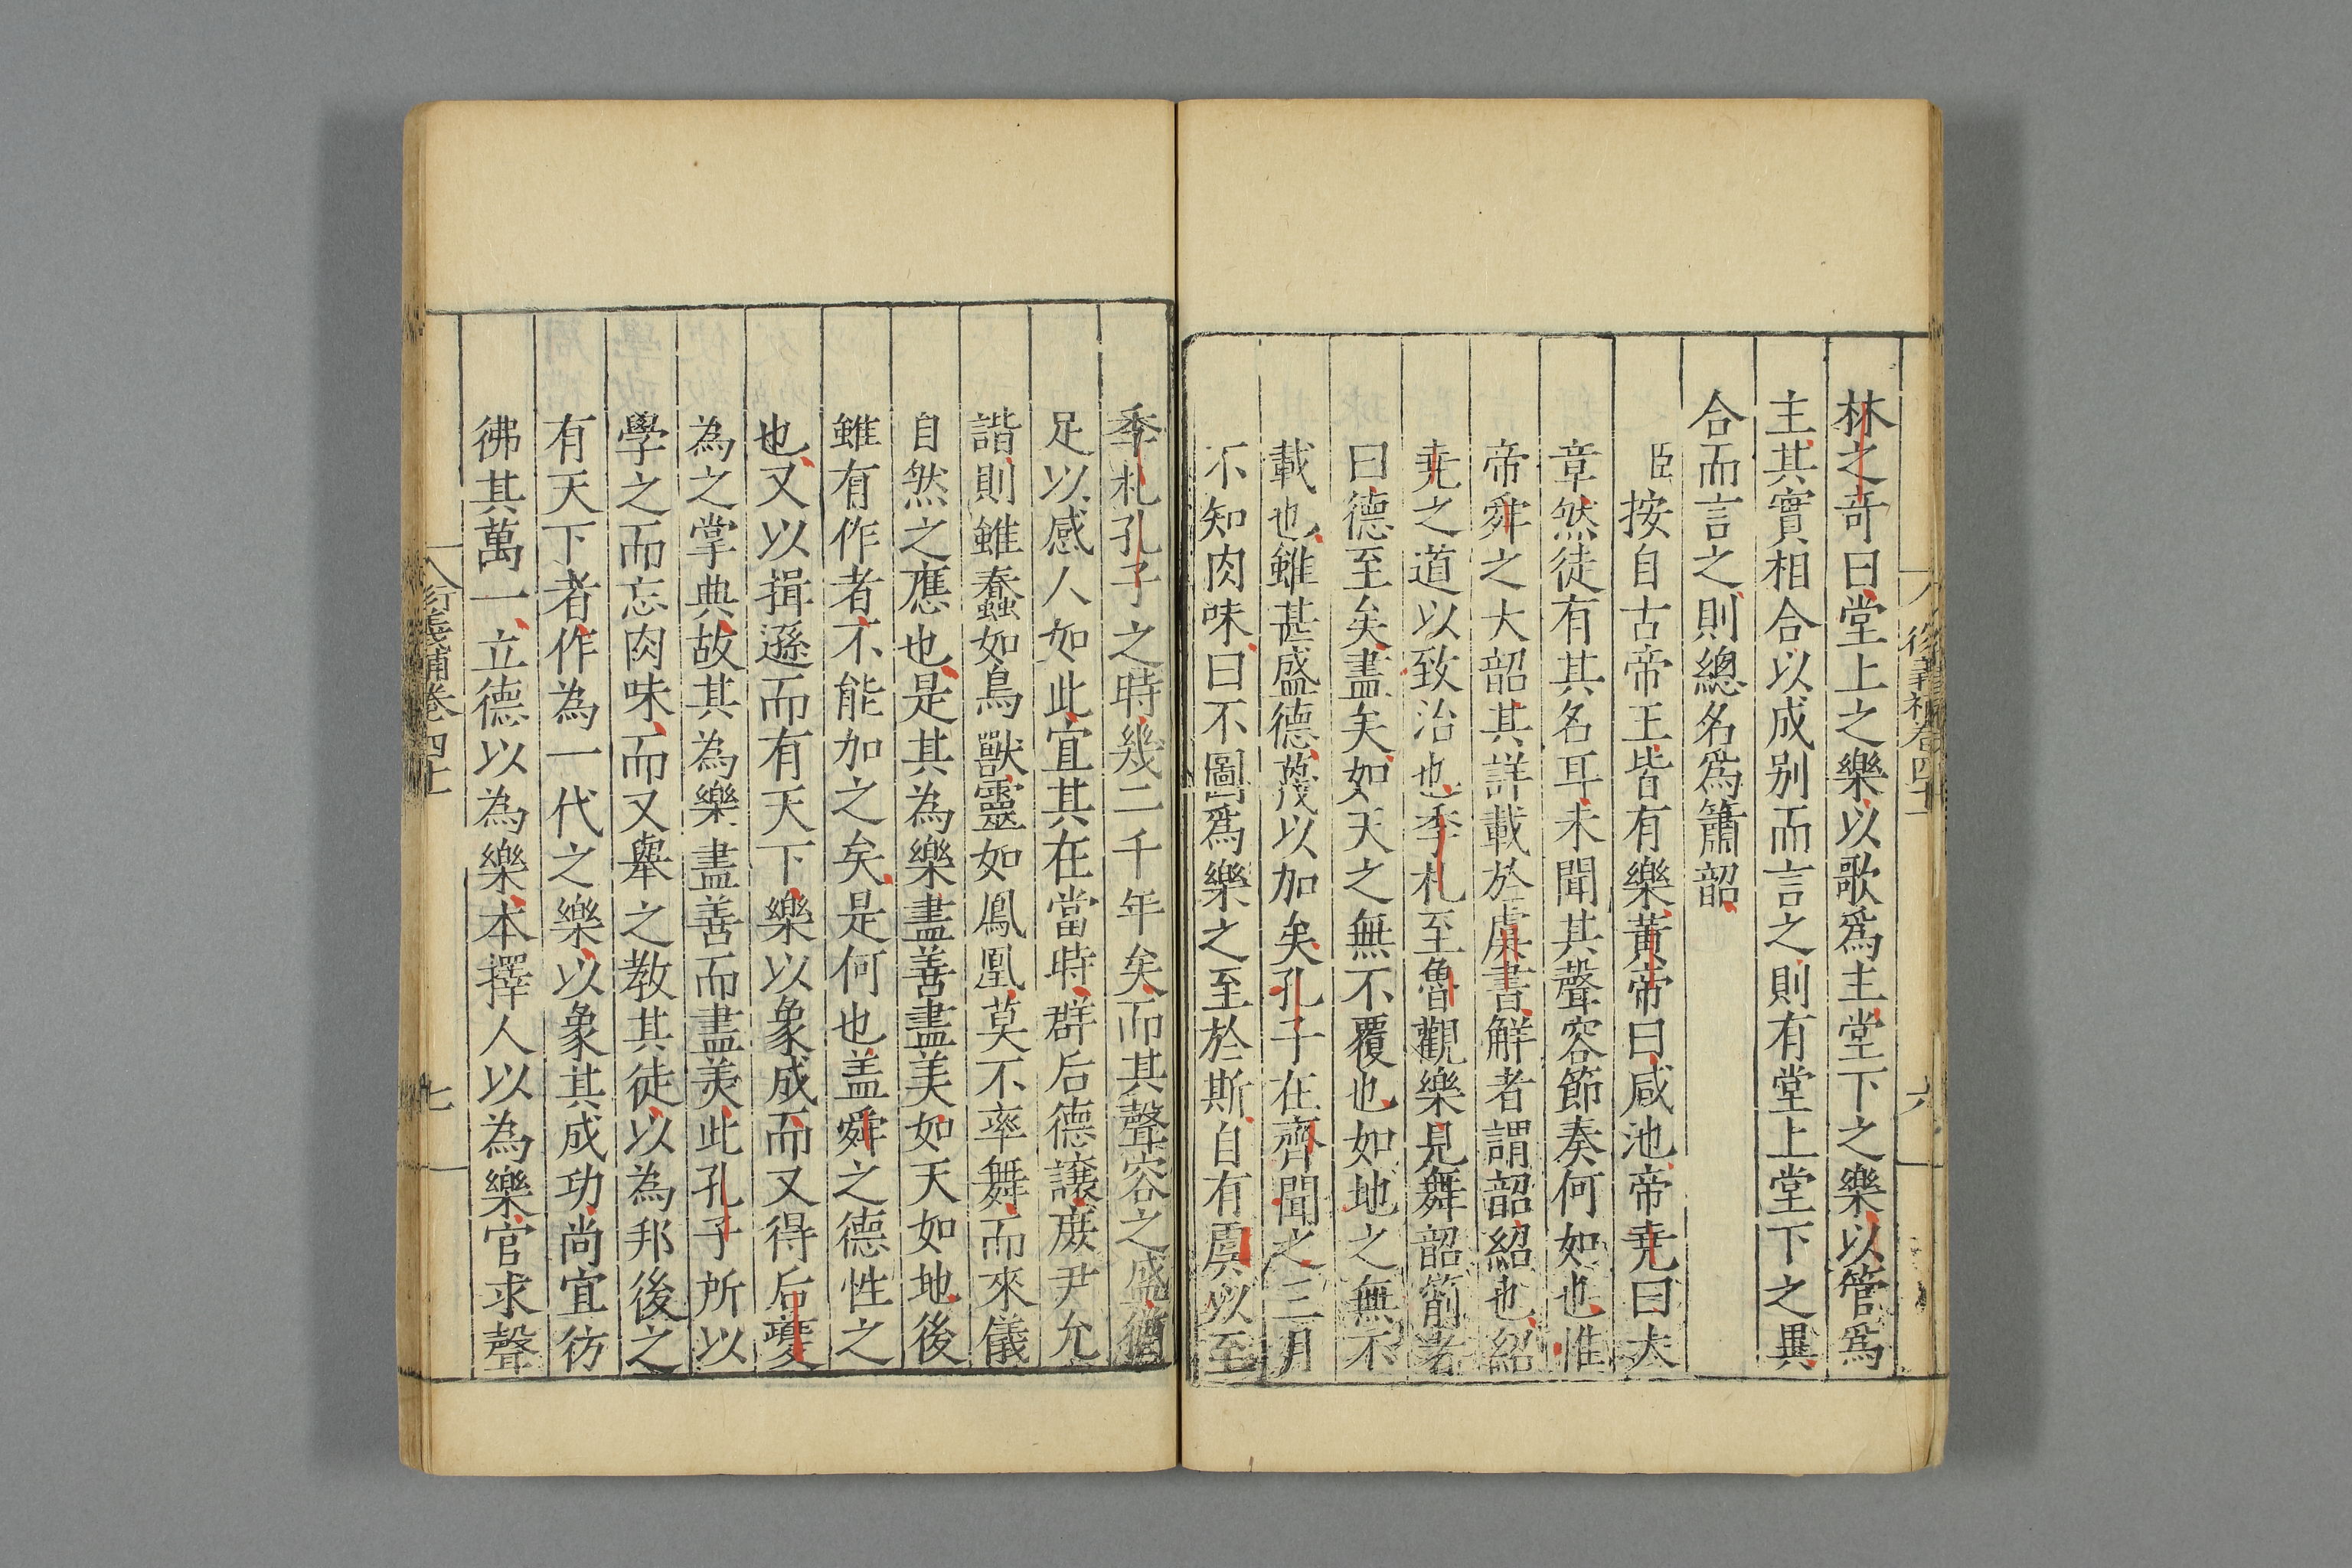 林之奇曰堂上之樂以歌爲主堂下之樂以管爲
主其實相合以成别而言之則有堂上堂下之異
合而言之則總名爲簫韶
臣按自古帝王皆有樂黄帝曰咸池帝堯曰大
章然徒有其名耳未聞其聲容節奏何如也惟
帝舜之大韶其詳載於虞書解者謂韶紹也紹
堯之道以致治也季札至魯觀樂見舞韶箾者
曰德至矣盡矣如天之無不覆也如地之無不
載也雖甚盛德蔑以加矣孔子在齊聞之三月
不知肉味曰不圖爲樂之至於斯自有虞以至
季札孔子之時幾二千年矣而其聲容之盛猶
足以感人如此宜其在當時群后德讓庶尹允
諧則雖蠢如鳥獸靈如鳳凰莫不率舞而來儀
自然之應也是其為樂盡善盡美如天如地後
雖有作者不能加之矣是何也盖舜之德性之
也又以揖遜而有天下樂以象成而又得后夔
為之掌典故其為樂盡善而盡美此孔子所以
學之而忘肉味而又舉之教其徒以為邦後之
有天下者作為一代之樂以象其成功尚宜彷
彿其萬一立德以為樂本擇人以為樂官求聲
義補卷四十
六
義補卷四十
七